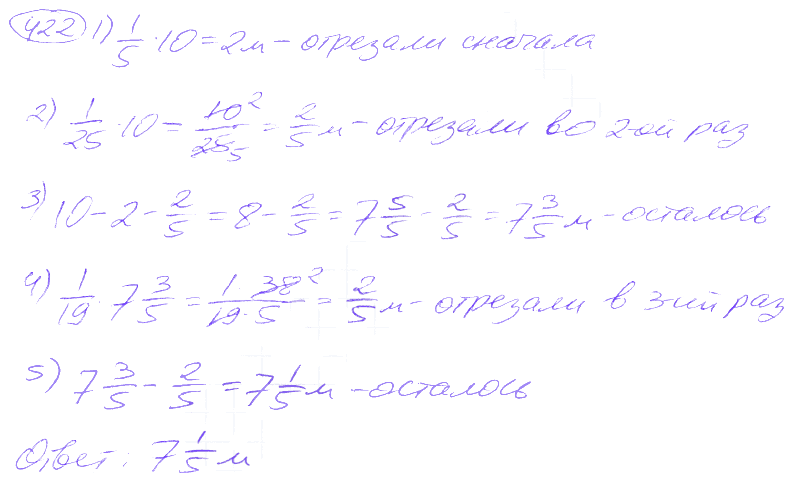 422 1) 1/5 · 10 = 2м - отрезали сначала
2) 1/25 · 10 = 10²/25₅ = 2/5 м - отрезали во 2-ой раз
3) 10 - 2 - 2/5 = 8 - 2/5 = 7 5/5 - 2/5 = 7 3/5 м - осталось
4) 1/19 · 7 3/5 = 1 · 38²/19 · 5 = 2/5 м - отрезали в 3-ий раз
5) 7 3/5 - 2/5 = 7 1/5 м - осталось
Ответ: 7 1/5 м